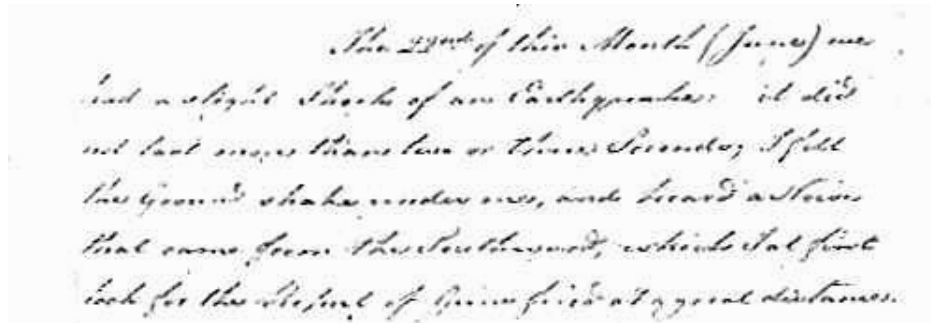 The 22nd of this Month (June) we
had a slight Shock of an Earthquake: it did
not last more than two or three Seconds; I felt
the Ground shake under me, and heard a Noise
that came from the Southward, which I at first
took for the Report of Guns fired at a great distance.